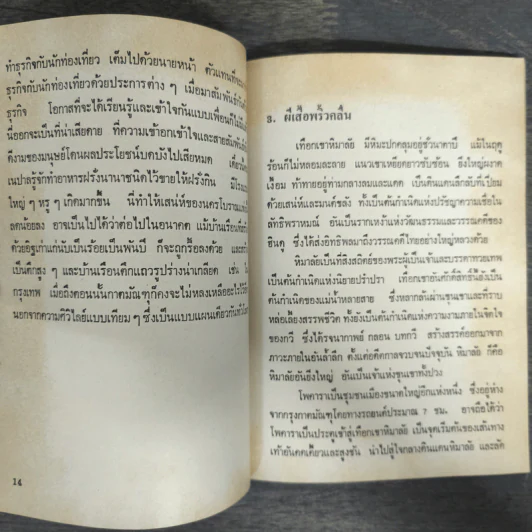 ทำธุรกิจกับนักท่องเที่ยว เต็มไปด้วยนายหน้า ตัวแทนที่จะ
ธุรกิจกับนักท่องเที่ยวด้วยประการต่าง ๆ เมื่อมาสัมพันธ์กัน
ธุรกิจ โอกาสที่จะได้เรียนรู้และเข้าใจกันแบบเพื่อนก็ไม่
นี่ออกจะเป็นที่น่าเสียดาย ที่ความเข้าอกเข้าใจและสายสัมพันธ์
ดีงามของมนุษย์โดนผลประโยชน์บดบังไปเสียหมด
ในปาล์รู้จักทำอาหารฝรั่งนานาชนิดไว้ขายให้ฝรั่งกิน มี
ใหญ่ ๆ หรู ๆ เกิดมากขึ้น นี่ทำให้เสน่ห์ของนครโบราณ
ลดน้อยลง อาจเป็นไปได้ว่าต่อไปในอนาคต แม้บ้านเรือน
ด้วยอิฐเก่าแก่นับเป็นร้อยเป็นพันปี ก็จะถูกรื้อลงด้วย และ
เป็นตึกสูง ๆ และบ้านเรือนตึกแถวรูปร่างน่าเกลียด เช่น
กรุงเทพ เมื่อถึงตอนนั้นกาฐมาณฑุก็คงจะไม่หลงเหลืออะไร
นอกจากความศิวิไลซ์แบบเทียม ๆ ซึ่งเป็นแบบแผนเดียวกัน
14
3. ผีเสื้อพริ้วคลื่น
เทือกเขาหิมาลัย มีหิมะปกคลุมอยู่ชั่วนาตาปี แม้ในฤดู
ร้อนก็ไม่หลอมละลาย แนวเขาเหยียดยาวซับซ้อน ยิ่งใหญ่ผงาด
เงื้อม ท้าทายอยู่ท่ามกลางลมและแดด เป็นดินแดนลึกลับที่เปี่ยม
ด้วยเสน่ห์และมนต์ขลัง ทั้งเป็นต้นกำเนิดแห่งปรัชญาความเชื่อใน
ลัทธิพราหมณ์ อันเป็นรากเหง้าแห่งวัฒนธรรมและวรรณคดีของ
ฮินดู ซึ่งได้ส่งอิทธิพลมาถึงวรรณคดีไทยอย่างใหญ่หลวงด้วย
หิมาลัยเป็นที่สิงสถิตย์ของพระผู้เป็นเจ้าและบรรดาทวยเทพ
เป็นต้นกำเนิดแห่งนิยายปรำปรา เทือกเขาอันศักดิ์สิทธิ์นี้ยังเป็น
ต้นกำเนิดของแม่น้ำหลายสาย ซึ่งหลากล้นผ่านขุนเขาและที่ราบ
หล่อเลี้ยงสรรพชีวิต ทั้งยังเป็นต้นกำเนิดแห่งความงามภายในจิตใจ
ของกวี ซึ่งได้รจนากาพย์ กลอน บทกวี สร้างสรรค์ออกมาจาก
ภาวะภายในอันล้ำลึก ตั้งแต่อดีตกาลจวบจนปัจจุบัน หิมาลัย ก็คือ
หิมาลัยอันยิ่งใหญ่ อันเป็นเจ้าแห่งขุนเขาทั้งปวง
โพคาราเป็นชุมชนเมืองขนาดใหญ่อีกแห่งหนึ่ง ซึ่งอยู่ห่าง
จากกรุงกาฐมาณฑุโดยทางรถยนต์ประมาณ 7 ชม. อาจถือได้ว่า
โพคาราเป็นประตูเข้าสู่เทือกเขาหิมาลัย เป็นจุดเริ่มต้นของเส้นทาง
เท้าอันคดเคี้ยวและสูงชัน นำไปสู่ใจกลางดินแดนหิมาลัย และลัด